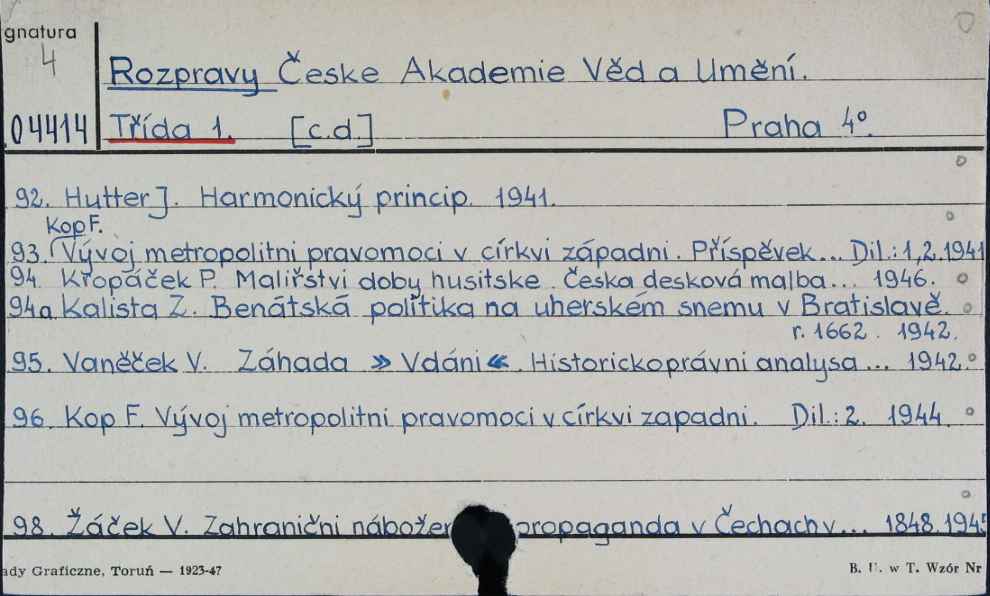 gnatura
4
Rozpravy České Akademie Věd a Umění.
04414 Třída 1. [c.d.] Praha 4°.
92. Hutter J. Harmonický princip. 1941.
Kop F.
93. Vývoj metropolitni pravomoci v církvi západni. Příspěvek... Dil.: 1,2. 1941
94. Kropáček P. Malířstvi doby husitske. Česka desková malba... 1946.
94a Kalista Z. Benátská politika na uherském snemu v Bratislavě.
r. 1662. 1942.
95. Vaněček V. Záhada » Vdáni «. Historickoprávni analysa... 1942.
96. Kop F. Vývoj metropolitni pravomoci v církvi zapadni. Dil.: 2. 1944
98. Žáček V. Zahraniční nábožen propaganda v Čechach v... 1848. 1945
ady Graficzne, Toruń — 1923-47
B. U. w T. Wzór Nr